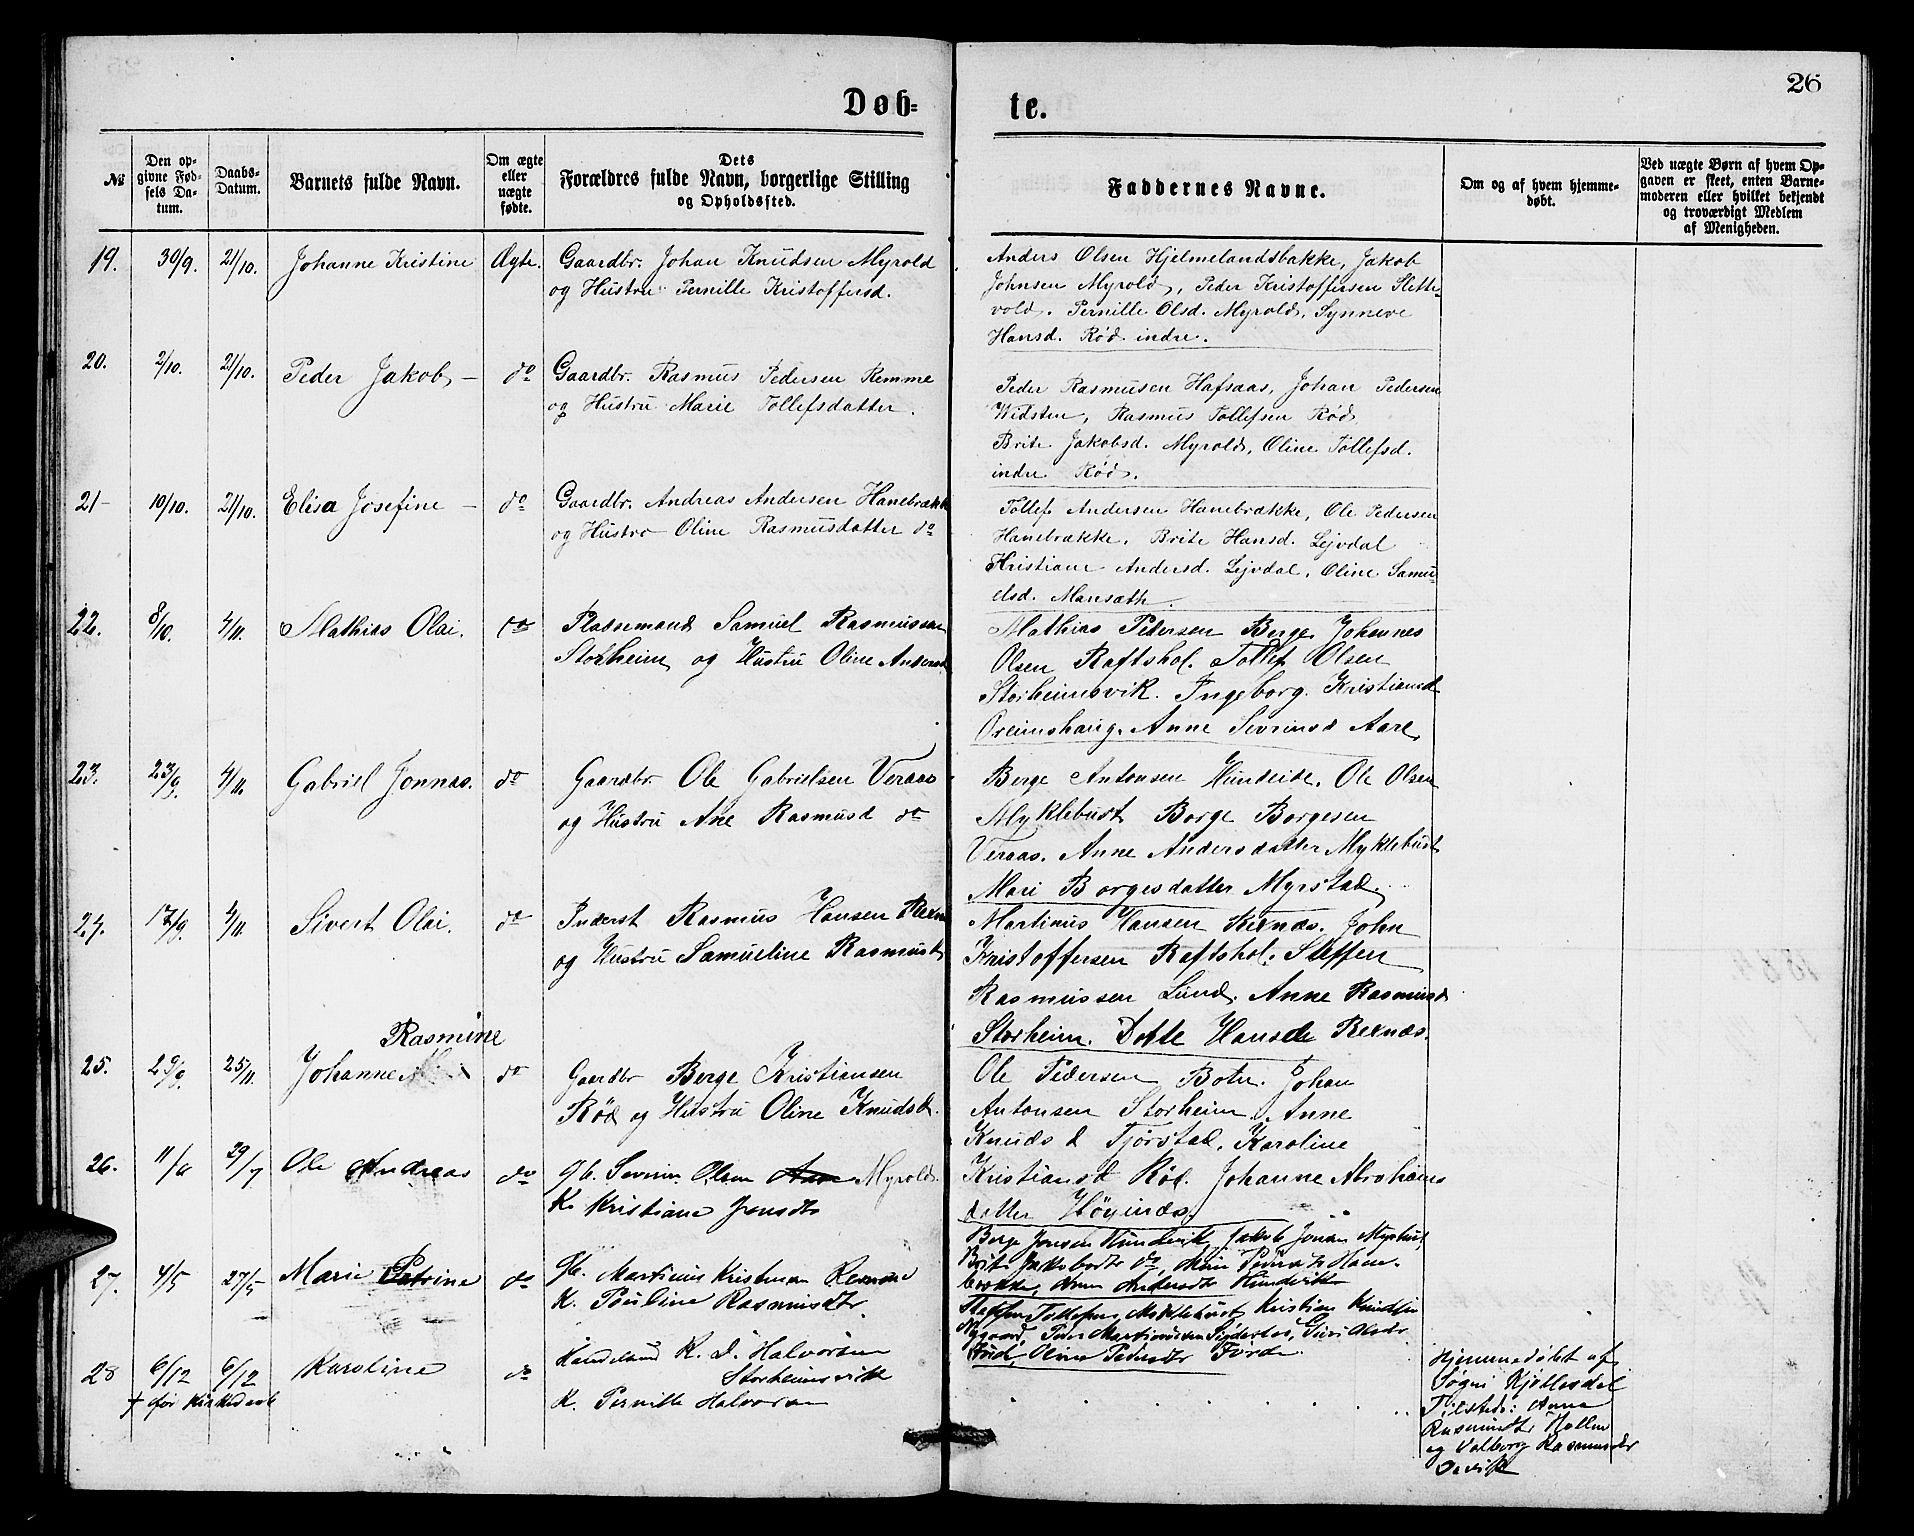 26
Døb-
te.
№
Den op-
givne Fød-
sels Da-
tum.
Daabs-
Datum.
Barnets fulde Navn.
Om ægte
eller
uægte
fødte.
Dets
Forældres fulde Navn, borgerlige Stilling
og Opholdssted.
Faddernes Navne.
Om og af hvem hjemme-
døbt.
Ved uægte Børn af hvem Op-
gaven er skeet, enten Barne-
moderen eller hvilket bekjendt
og troværdigt Medlem
af Menigheden.
19. 30/9. 21/10. Johanne Kristine Ægte. Gaardbr. Johan Knudsen Myrold
og Hustru Pernille Kristoffersd.
Anders Olsen Hjelmelandsbakke, Jakob
Johnsen Myrold, Peder Kristoffersen Slette-
vold. Pernille Olsd. Myrold, Synneve
Hansd. Rød indre.
20. 2/10. 21/10. Peder Jakob – do Gaardbr. Rasmus Pedersen Remme
og Hustru Marie Tollefsdatter.
Peder Rasmusen Hafsaas, Johan Pedersen
Widsten, Rasmus Tollefsen Rød
Brite Jakobsd. Myrold, Oline Tollefsd.
indre Rød.
21– 10/10. 21/10. Elisa Josefine – do Gaardbr. Andreas Andersen Hanebrække
og Hustru Oline Rasmusdatter do
Tollef Andersen Hanebrække, Ole Pedersen
Hanebrække, Brite Hansd. Lejvdal
Kristiane Andersd. Lejvdal, Oline Samu-
elsd. Mansæth.
22. 8/10. 4/11. Mathias Olai. do Pladsemand Samuel Rasmussen
Storheim og Hustru Oline Andersd
Mathias Pedersen Berge, Johannes
Olsen Raftshol. Tollef Olsen
Storheimsvik. Ingeborg Kristiansd
Oreimshaug. Anne Sivrinsd Aare
23. 23/9. 4/11. Gabriel Jonnas. do Gaardbr. Ole Gabrielsen Veraas
og Hustru Ane Rasmusd do
Berge Antonsen Hundeide. Ole Olsen
Myklebust Borge Borgesen
Veraas. Anne Andersdatter Myklebust
Mari Borgesdatter Myrstad.
24. 17/9. 4/11. Sivert Olai. do Inderst Rasmus Hansen
og Hustru Samueline Rasmusd
Martinus Hansen Rexnæs. John
Kristoffersen Raftshol. Steffen
Rasmussen Lund. Anne Rasmusd
Storheim. Dotte Hansd Rexnæs.
Rasmine
25. 29/9. 25/11. Johanne do Gaardbr Berge Kristiansen
Rød og Hustru Oline Knudsd.
Ole Pedersen Botn. Johan
Antonsen Storheim. Anne
Knudsd Tjørstad, Karoline
Kristiansd Rød. Johanne Abrahams
datter Høginæs.
26. 11/6 29/7 Ole Andreas do Gb. Severin Olsen Myrold
K. Kristiane Jonsdtr
Berge Jonsen Hundvik, Jakob Jonsen
Brit Jakobsdtr do,
brække, Anne Andersdtr Hundvik
27. 4/5 27/5 Marie Petrine do Gb. Martinus Kristensen
K. Pouline Rasmusdtr
Steffen Tollefsen Myklebust, Kristian Knudsen
Nygaard, Peder Martinussen
Oline Pedersdtr Førde
28 6/12 6/12 Karoline do Handelsmand K. D. Halvorsen
Storheimsvik
K. Pernille Halvorsen
† før Kirkedaab
Hjemmedøbt af
Søgni Kjøllesdal
Tilstede: Anna
Rasmusdtr
og Valborg Rasmusdtr